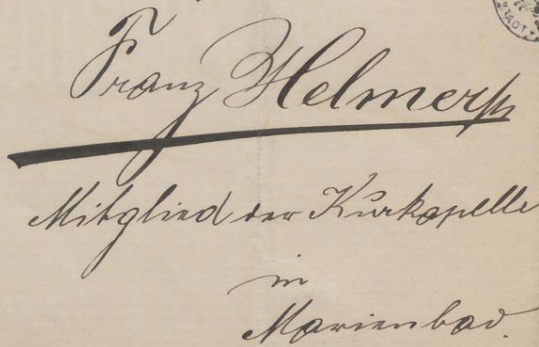 Franz Helmerst
Mitglied der Kurkapelle
in
Marienbad.